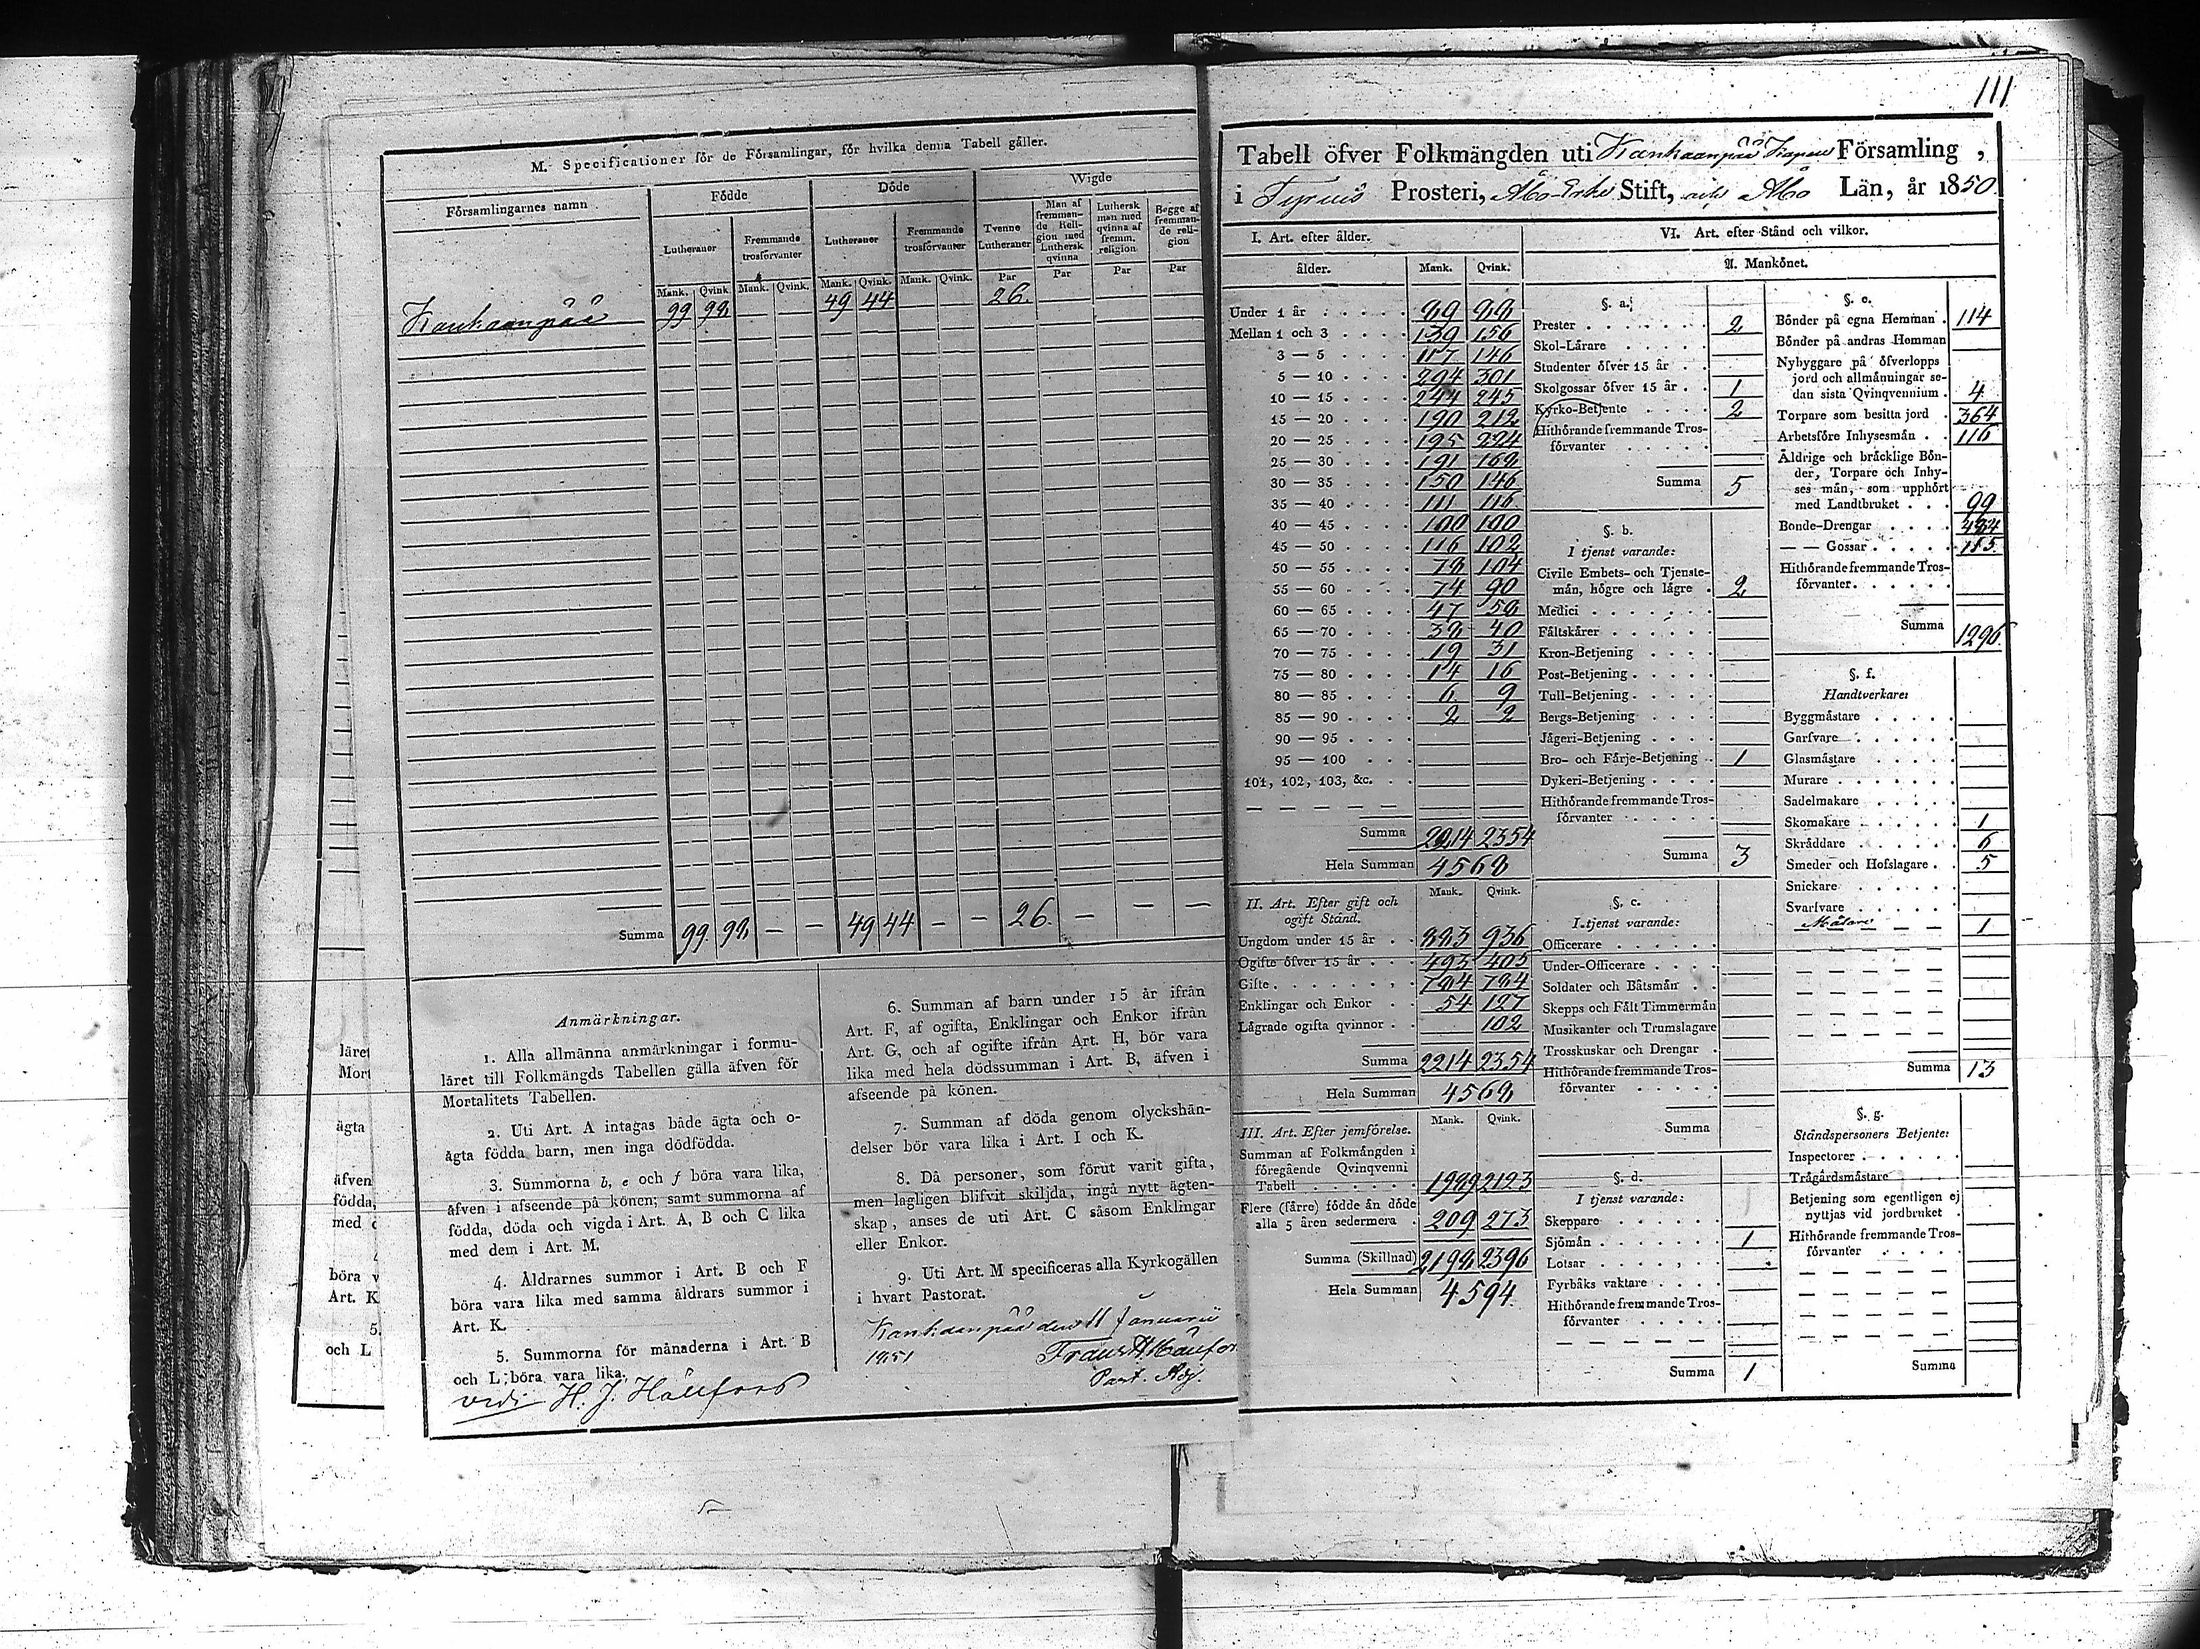 M. Specificationer för de Församlingar, för hvilka denna Tabell gäller.
Församlingarnes namn
Födde
Döde
Wigde
Lutheraner
Fremmande trosförvanter
Lutheraner
Fremmande trosförvanter
Tvenne Lutheraner
Man af fremmande Religion med Luthersk qvinna
Luthersk man med qvinna af fremm. religion
Begge af fremmande religion
Mank. Qvink. Mank. Qvink. Mank. Qvink. Mank. Qvink. Par Par Par Par
Kankaanpää 99 98 49 44 26.
Summa 99. 98 — — 49 44 — — 26. — — —
Anmärkningar.
1. Alla allmänna anmärkningar i formu-
läret till Folkmängds Tabellen gälla äfven för
Mortalitets Tabellen.
2. Uti Art. A intagas både ägta och o-
ägta födda barn, men inga dödfödda.
3. Summorna b, e och f böra vara lika,
äfven i afseende på könen; samt summorna af
födda, döda och vigda i Art. A, B och C lika
med dem i Art. M.
4. Åldrarnes summor i Art. B och F
böra vara lika med samma åldrars summor i
Art. K.
5. Summorna för månaderna i Art. B
och L böra vara lika.
vidi H. J. Hällfors
6. Summan af barn under 15 år ifrån
Art. F, af ogifta, Enklingar och Enkor ifrån
Art. G, och af ogifte ifrån Art. H, bör vara
lika med hela dödssumman i Art. B, äfven i
afseende på könen.
7. Summan af döda genom olyckshän-
delser bör vara lika i Art. I och K.
8. Då personer, som förut varit gifta,
men lagligen blifvit skiljda, ingå nytt ägten-
skap, anses de uti Art. C såsom Enklingar
eller Enkor.
9. Uti Art. M specificeras alla Kyrkogällen
i hvart Pastorat.
Kankaanpää den 11 Januarii
1851
Past. Adj.
läret
Mort
ägta
äfven
födda,
med d
böra v
Art. K
5.
och L
111
Tabell öfver Folkmängden uti Kankaanpää Kapell Församling,
i Tyrvis Prosteri, Åbo Erke Stift, och Åbo Län, år 1850.
I. Art. efter ålder.
ålder. Mank. Qvink.
Under 1 år 89 88
Mellan 1 och 3 139 156
3 — 5 117 146
5 — 10 294 301
10 — 15 244 245
15 — 20 190 212
20 — 25 195 224
25 — 30 191 168
30 — 35 150 146
35 — 40 111 116
40 — 45 100 100
45 — 50 116 102
50 — 55 78 104
55 — 60 74 90
60 — 65 47 58
65 — 70 38 40
70 — 75 19 31
75 — 80 14 16
80 — 85 6 9
85 — 90 2 2
90 — 95
95 — 100
101, 102, 103, &c.
Summa 2214 2354
Hela Summan 4568
II. Art. Efter gift och
ogift Stånd.
Mank. Qvink.
Ungdom under 15 år 883 936
Ogifte öfver 15 år 493 405
Gifte 784 784
Enklingar och Enkor 54 127
Lägrade ogifta qvinnor 102
Summa 2214 2354
Hela Summan 4568
III. Art. Efter jemförelse.
Mank. Qvink.
Summan af Folkmängden i
föregående Qvinqvenni
Tabell 1989 2123
Flere (färre) födde än döde
alla 5 åren sedermera 209 273
Summa (Skillnad) 2198 2396
Hela Summan 4594.
VI. Art. efter Stånd och vilkor.
A. Mankönet.
§. a.
Prester 2
Skol-Lärare
Studenter öfver 15 år
Skolgossar öfver 15 år 1
Kyrko-Betjente 2
Hithörande fremmande Tros-
förvanter
Summa 5
§. b.
I tjenst varande:
Civile Embets- och Tjenste-
män, högre och lägre 2
Medici
Fältskärer
Kron-Betjening
Post-Betjening
Tull-Betjening
Bergs-Betjening
Jägeri-Betjening
Bro- och Färje-Betjening 1
Dykeri-Betjening
Hithörande fremmande Tros-
förvanter
Summa 3
§. c.
I tjenst varande:
Officerare
Under-Officerare
Soldater och Båtsmän
Skepps och Fält Timmermän
Musikanter och Trumslagare
Trosskuskar och Drengar
Hithörande fremmande Tros-
förvanter
Summa
§. d.
I tjenst varande:
Skeppare
Sjömän 1
Lotsar
Fyrbåks vaktare
Hithörande fremmande Tros-
förvanter
Summa 1
§. e.
Bönder på egna Hemman 114
Bönder på andras Hemman
Nybyggare på öfverlopps
jord och allmänningar se-
dan sista Qvinqvennium 4
Torpare som besitta jord 364
Arbetsföre Inhysesmän 116
Äldrige och bräcklige Bön-
der, Torpare och Inhy-
ses män, som upphört
med Landtbruket 99
Bonde-Drengar 484
— — Gossar 115.
Hithörande fremmande Tros-
förvanter
Summa 1296.
§. f.
Handtverkare:
Byggmästare
Garfvare
Glasmästare
Murare
Sadelmakare
Skomakare 1
Skräddare 6
Smeder och Hofslagare 5
Snickare
Svarfvare
Målare 1
Summa 13
§. g.
Ståndspersoners Betjente:
Inspectorer
Trägårdsmästare
Betjening som egentligen ej
nyttjas vid jordbruket
Hithörande fremmande Tros-
förvanter
Summa